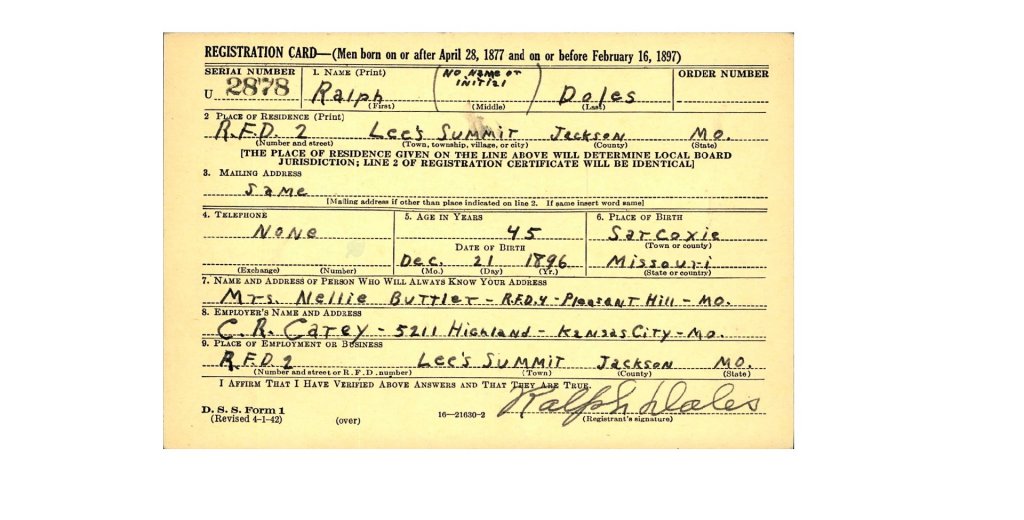 REGISTRATION CARD—(Men born on or after April 28, 1877 and on or before February 16, 1897)
SERIAL NUMBER 1. NAME (Print) (No Name or initial) ORDER NUMBER
U 2878 Ralph Doles
(First) (Middle) (Last)
2 PLACE OF RESIDENCE (Print)
R.F.D. 2 Lee's Summit Jackson Mo.
(Number and street) (Town, township, village, or city) (County) (State)
[THE PLACE OF RESIDENCE GIVEN ON THE LINE ABOVE WILL DETERMINE LOCAL BOARD
JURISDICTION; LINE 2 OF REGISTRATION CERTIFICATE WILL BE IDENTICAL]
3. MAILING ADDRESS
Same
[Mailing address if other than place indicated on line 2. If same insert word same]
4. TELEPHONE 5. AGE IN YEARS 6. PLACE OF BIRTH
None 45 Sarcoxie
DATE OF BIRTH (Town or county)
Dec. 21 1896 Missouri
(Exchange) (Number) (Mo.) (Day) (Yr.) (State or country)
7. NAME AND ADDRESS OF PERSON WHO WILL ALWAYS KNOW YOUR ADDRESS
Mrs. Nellie Buttler - R.F.D. 4 - Pleasant Hill - Mo.
8. EMPLOYER'S NAME AND ADDRESS
C. R. Carey - 5211 Highland - Kansas City - Mo.
9. PLACE OF EMPLOYMENT OR BUSINESS
R.F.D. 2 Lee's Summit Jackson Mo.
(Number and street or R. F. D. number) (Town) (County) (State)
I AFFIRM THAT I HAVE VERIFIED ABOVE ANSWERS AND THAT THEY ARE TRUE.
D. S. S. Form 1 Ralph Doles
(Revised 4-1-42) (over) 16—21630-2 (Registrant's signature)